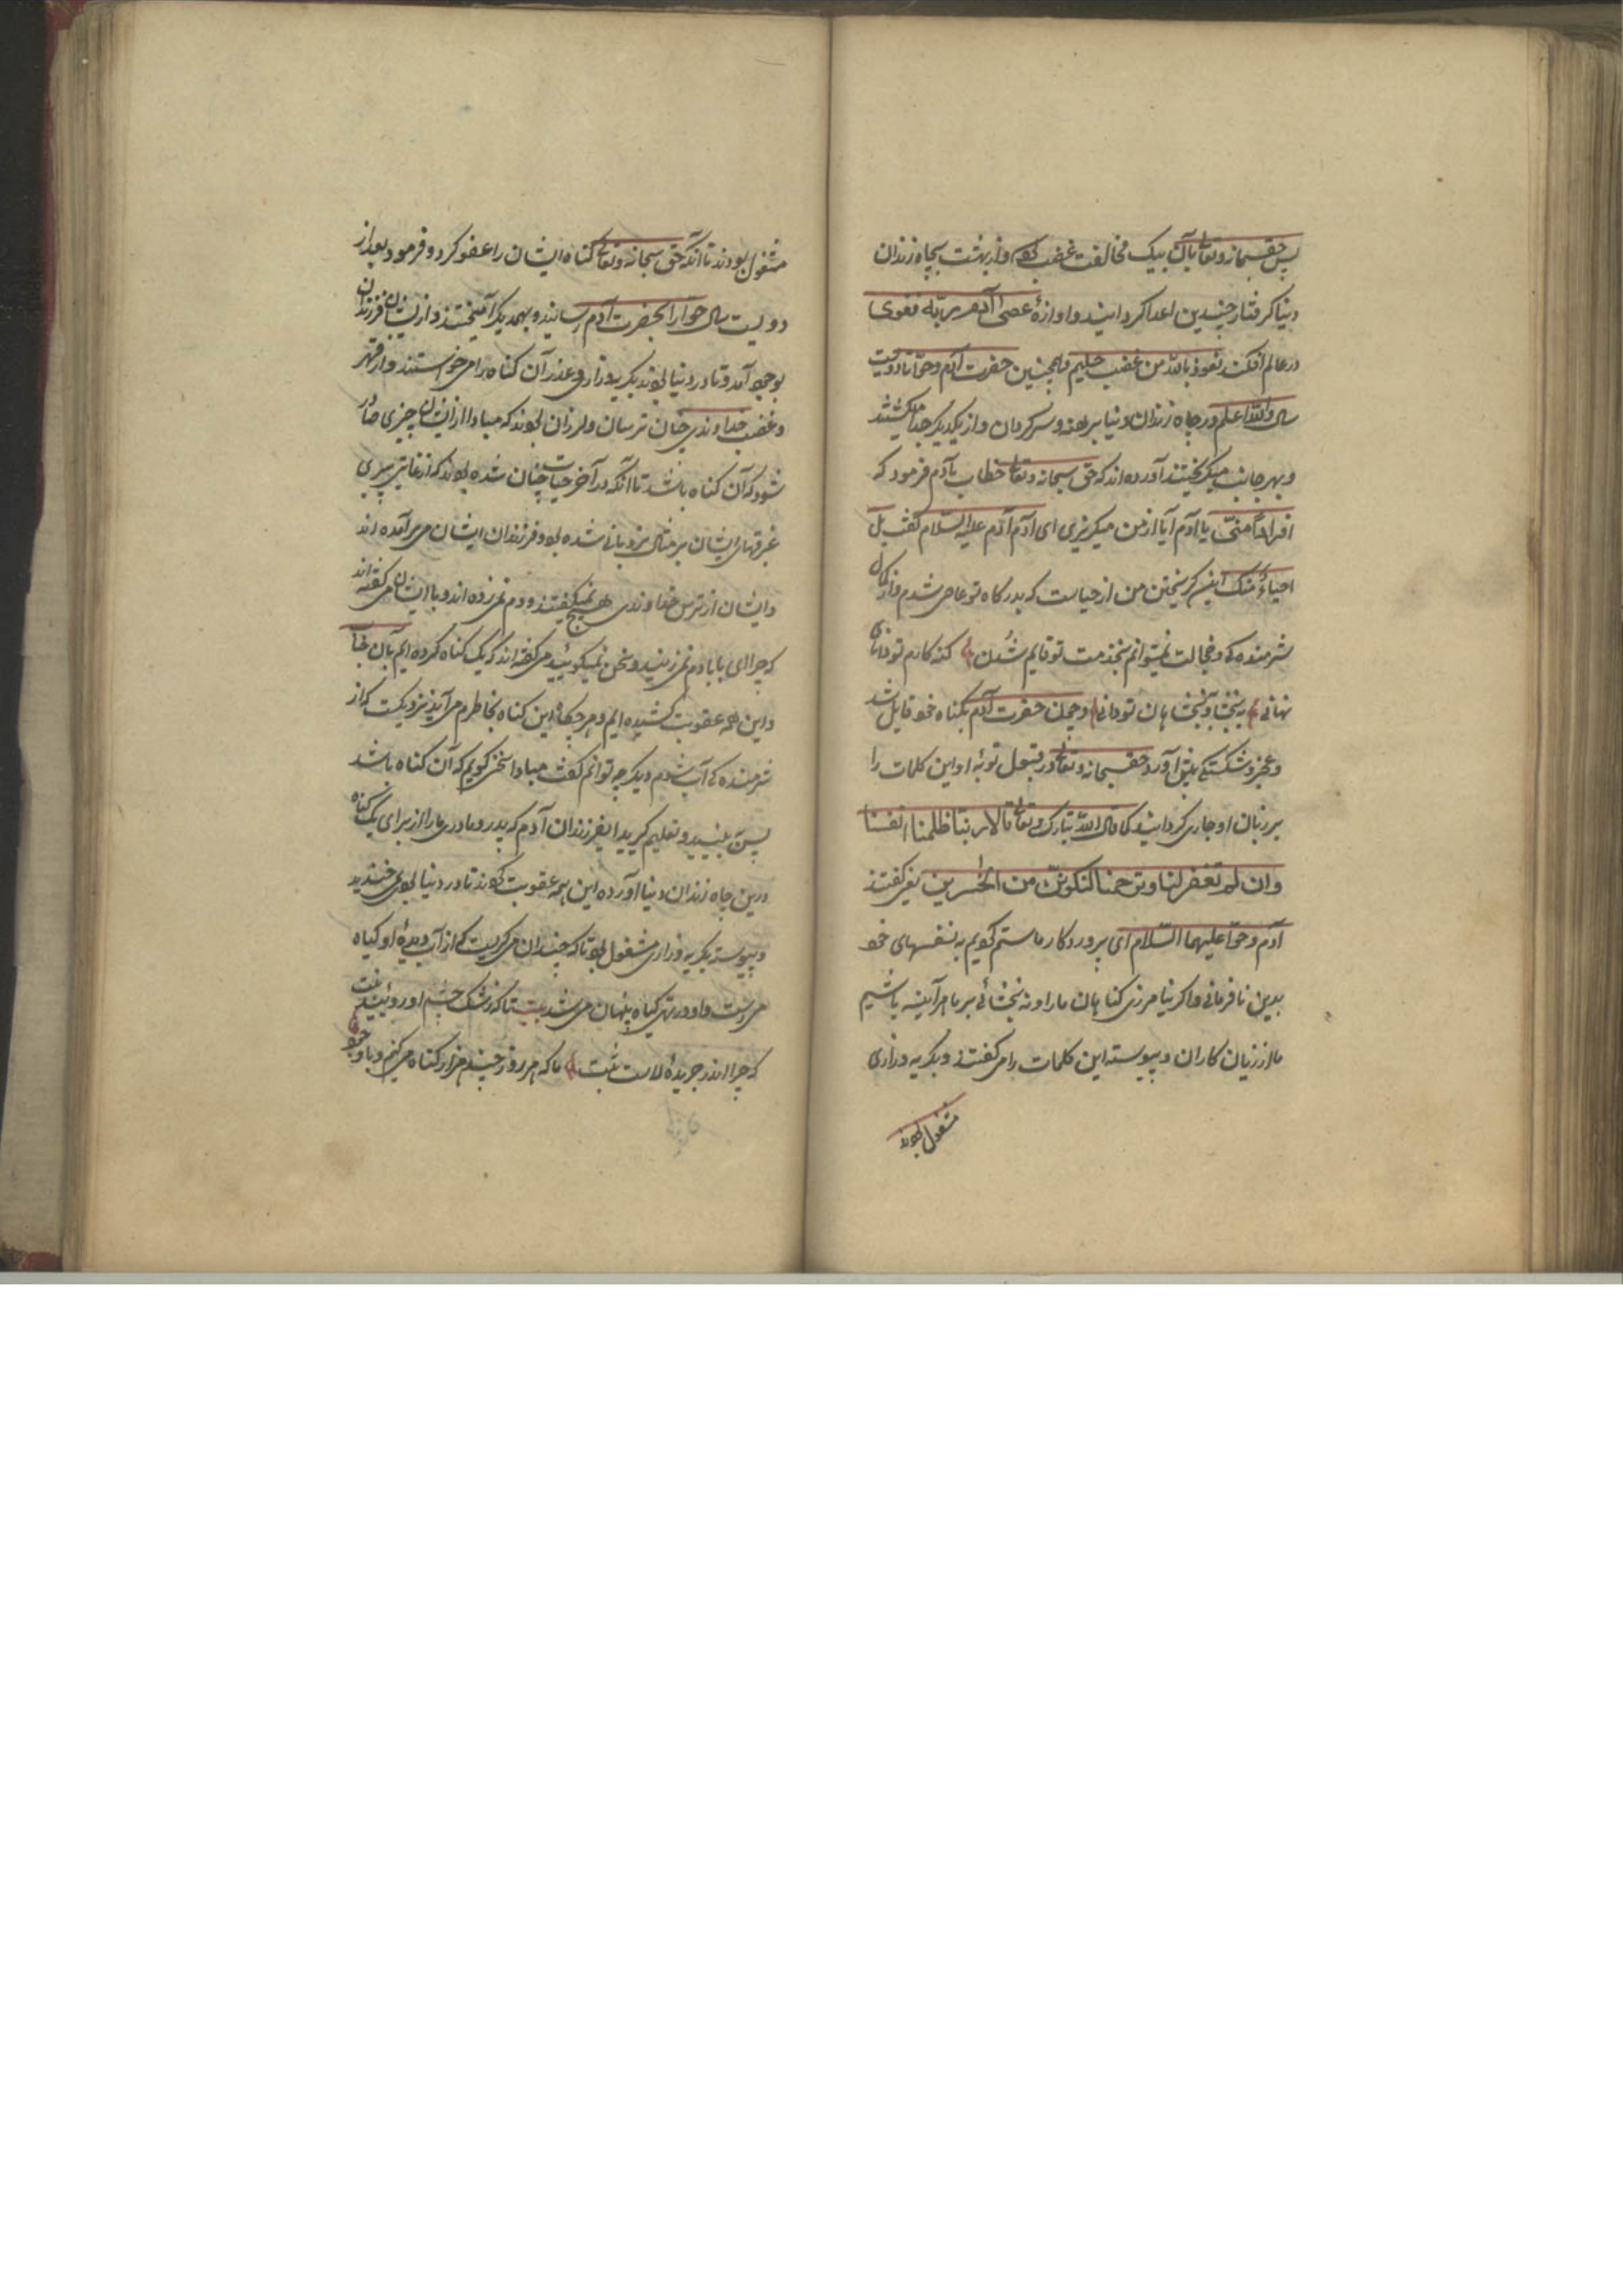 پس حقسبحانه وتعالی بآن بیک مخالفت غضب کرد واز بهشت بچاه زندان
دنیا گرفتار چندین اعدا گردانید واوازهٔ عصی آدم ربّه فغوی
در عالم افکند نعوذ بالله من غضب حلیم وهمچنین حضرت آدم وحوّا تا دویست
سال والله اعلم در چاه زندان دنیا برهنه وسرگردان واز یکدیگر جدا میگشتند
وبهر جانب میگریختند آورده اند که حق سبحانه وتعالی خطاب بآدم فرمود که
افرارا منّی یا آدم آیا از من میگریزی ای آدم آدم علیه السّلام گفت بل
احیاءً منک این گریختن من از حیاست که بدرگاه تو عاصی شدم واز کمال
شرمنده کی وخجالت نمیتوانم بخدمت تو قایم شدن گنه کارم تو دانای
نهانی به بخشا وببخشا هان تو دانی وچون حضرت آدم بگناه خود قایل شد
وعجز وشکستگی پیش آورد حقسبحانه وتعالی در قبول توبهٔ او این کلمات را
بر زبان او جاری گردانید کما قال الله تبارک وتعالی قالا ربنا ظلمنا انفسنا
وان لم تغفر لنا وترحمنا لنکوننّ من الخسرین یعنی گفتند
آدم وحوّا علیهما السّلام ای پروردگار ما ستم کردیم به نفسهای خود
بدین نافرمانی واگر نیامرزی گناهان ما را ونه بخشائی بر ما هر آینه باشیم
ما از زیان کاران وپیوسته این کلمات را می گفتند وبگریه وزاری
مشغول بودند
مشغول بودند تا آنکه حق سبحانه وتعالی گناه ایشان را عفو کرد وفرمود بعد از
دویست سال حوّا را بحضرت آدم رسانید وبهمدیگر آمیختند واز ایشان فرزندان
بوجود آمد وتا در دنیا بودند بگریه وزاری وعذر آن گناه را می خواستند واز قهر
وغضب خداوندی چنان ترسان ولرزان بودند که مبادا از ایشان چیزی صادر
شود که آن گناه باشد تا آنکه در آخر حیات چنان شده بودند که از غایت پیری
غبرقهای ایشان بر مثال نردبانی شده بود وفرزندان ایشان می برآمده اند
وایشان از ترس خداوندی هیچ نمیگفتند ودم نمی زده اند وبا ایشان می گفته اند
که چرا ای بابا دم نمی زنید وسخن نمیگوئید می گفته اند که یک گناه کرده ایم بآن
واین همه عقوبت کشیده ایم وهر چگاه این گناه بخاطرم می آید نزدیکست که از
شرمنده کی آب شوم دیگر چه توانم گفت مبادا سخن گویم که آن گناه باشد
پس ببینید وتعلیم گیرید ای فرزندان آدم که پدر ومادر ما را از برای یک گناه
درین چاه زندان دنیا آورده این همه عقوبت کردند تا در دنیا بود نمی خندید
وپیوسته بگریه وزاری مشغول بود تا که چندان می گریست که از آب دیدهٔ او گیاه
می رست واو در تهی گیاه پنهان می شد بیت تا که زشک چشم او روئید نبت
که چرا اندر جریدهٔ لاست ثبت ما که هر روز چندم هزار گناه می کنیم وباوجود